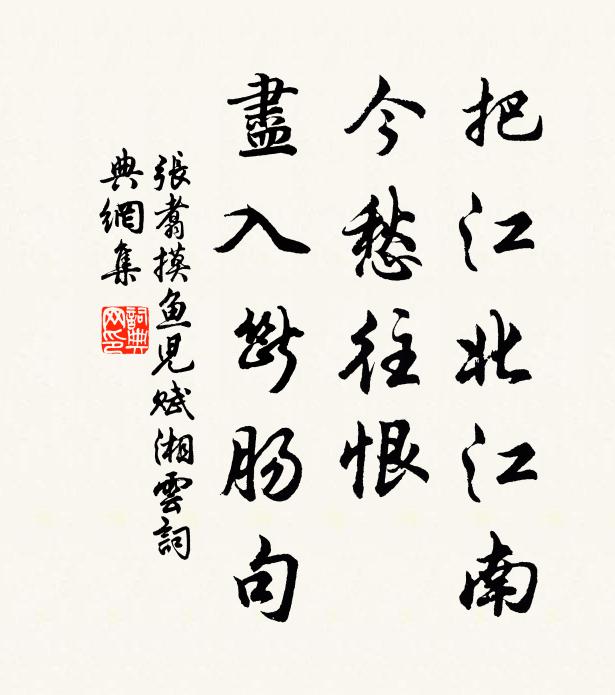 把江北江南
今愁往恨
盡入斷腸句
張翥摸魚児賦湘雲詞
典網集
詞典
网印